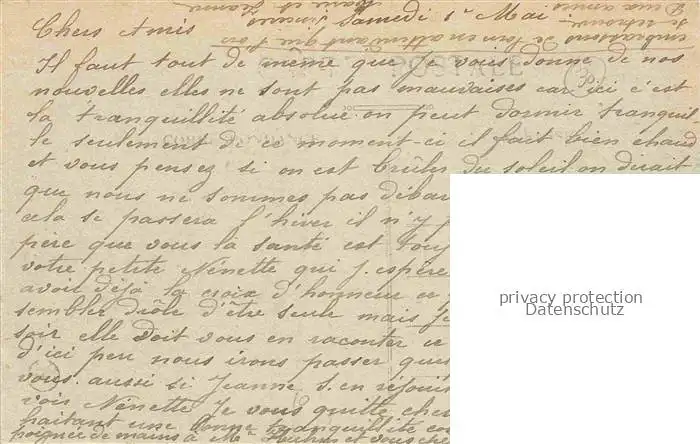 Samedi 1er Mai
Chers Amis
Il faut tout de même que je vous donne de nos
nouvelles elles ne sont pas mauvaises car ici c'est
la tranquillité absolue on peut dormir tranquil
le seulement de ce moment-ci il fait bien chaud
et vous pensez si on est brûler du soleil on dirait
que nous ne sommes pas débar
cela se passera l'hiver il n'y
père que vous la santé est touj
votre petite Nénette qui j'espère
avoir déjà la croix d'honneur ce
sembler drôle d'être seule mais je
soir elle doit vous en raconter ce
d'ici peu nous irons passer quel
vous aussi si Jeanne s'en réjouis
voir Nénette je vous quitte cher
haitant une bonne tranquillité
poignée de mains à Mr et vous che
embrassons de loin en attendant que
CARTE POSTALE
CORRESPONDANCE
privacy protection
Datenschutz